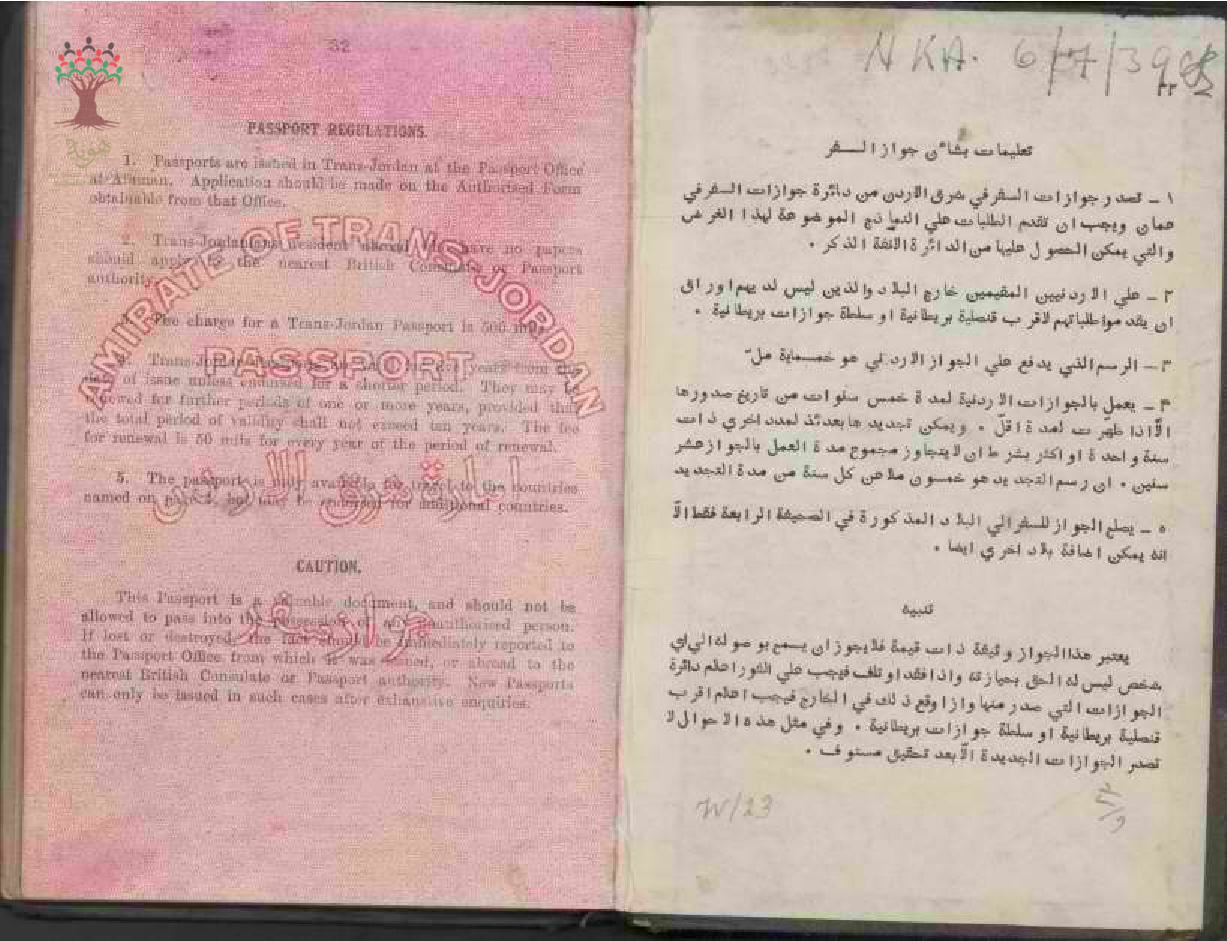 32
PASSPORT REGULATIONS.
1. Passports are issued in Trans-Jordan at the Passport Office
at Amman. Application should be made on the Authorised Form
obtainable from that Office.
2. Trans-Jordanians resident abroad who have no papers
should apply to the nearest British Consulate or Passport
authority.
3. The charge for a Trans-Jordan Passport is 500 mils.
4. Trans-Jordan Passports are valid for five years from the
date of issue unless endorsed for a shorter period. They may be
renewed for further periods of one or more years, provided that
the total period of validity shall not exceed ten years. The fee
for renewal is 50 mils for every year of the period of renewal.
5. The passport is only available for travel to the countries
named on page 4, but may be endorsed for additional countries.
CAUTION.
This Passport is a valuable document, and should not be
allowed to pass into the possession of an unauthorised person.
If lost or destroyed, the fact should be immediately reported to
the Passport Office from which it was issued, or abroad to the
nearest British Consulate or Passport authority. New Passports
can only be issued in such cases after exhaustive enquiries.
AMIRATE OF TRANS-JORDAN
PASSPORT
امارة شرق الاردن
جواز سفر
هوية
NKA. 6/7/39
٣٣
تعليمات بشائن جواز السفر
١ – تصدر جوازات السفر في شرق الاردن من دائرة جوازات السفر في
عمان ويجب ان تقدم الطلبات علي النماذج الموضوعة لهذا الغرض
والتي يمكن الحصول عليها من الدائرة الانفة الذكر .
٢ – علي الاردنيين المقيمين خارج البلاد والذين ليس لديهم اوراق
ان يقدموا طلباتهم لاقرب قنصلية بريطانية او سلطة جوازات بريطانية .
٣ – الرسم الذي يدفع علي الجواز الاردني هو خمسماية ملّ
٤ – يعمل بالجوازات الاردنية لمدة خمس سنوات من تاريخ صدورها
الّا اذا ظهرت لمدة اقلّ . ويمكن تجديدها بعدئذ لمدد اخري ذات
سنة واحدة او اكثر بشرط ان لا يتجاوز مجموع مدة العمل بالجواز عشر
سنين . ان رسم التجديد هو خمسون ملا عن كل سنة من مدة التجديد
٥ – يصلح الجواز للسفر الي البلاد المذكورة في الصحيفة الرابعة فقط الّا
انه يمكن اضافة بلاد اخري ايضا .
تنبيه
يعتبر هذا الجواز وثيقة ذات قيمة فلا يجوز ان يسمح بوصوله الي اي
شخص ليس له الحق بحيازته واذا فقد او تلف فيجب علي الفور اعلام دائرة
الجوازات التي صدر منها واذا وقع ذلك في الخارج فيجب اعلام اقرب
قنصلية بريطانية او سلطة جوازات بريطانية . وفي مثل هذه الاحوال لا
تصدر الجوازات الجديدة الّا بعد تحقيق مستوف .
W/23